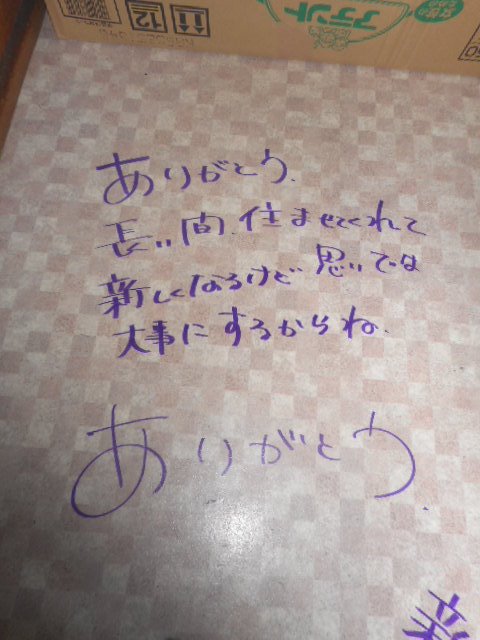 アテント
12
ありがとう.
長い間 住ませてくれて
新しくなるけど 思いでは
大事にするからね.
ありがとう.